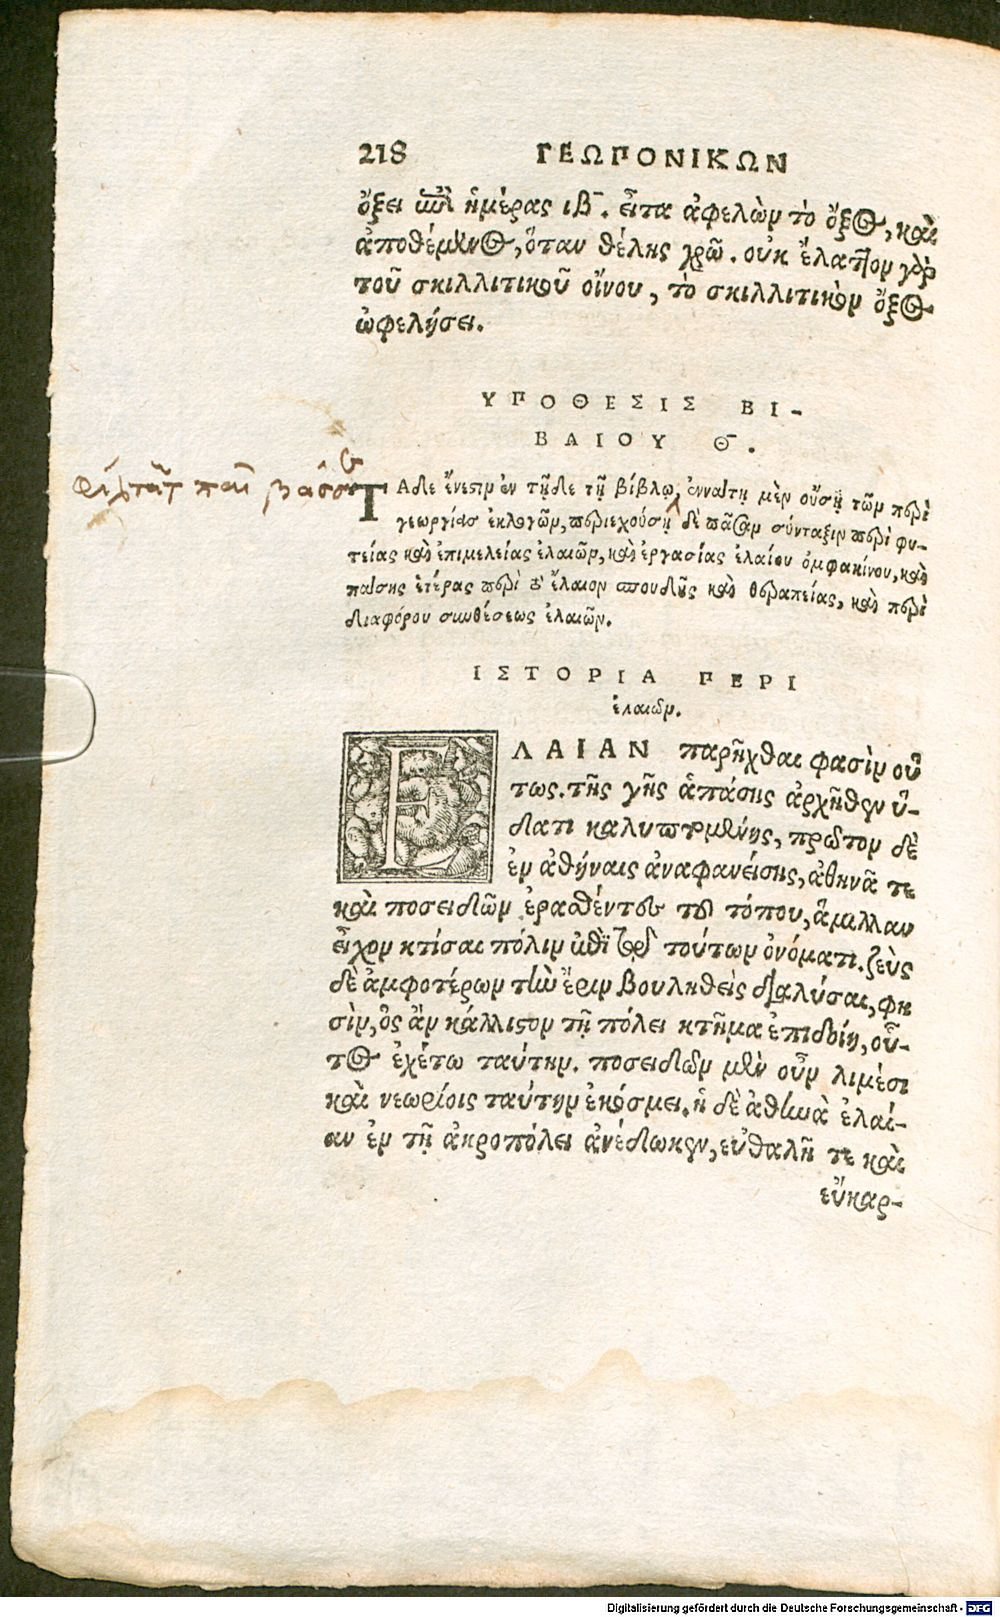 218 ΓΕΩΠΟΝΙΚΩΝ
ὄξει ἐπὶ ἡμέρας ιβ‾. εἶτα ἀφελὼν τὸ ὄξος, καὶ
ἀποθέμενος, ὅταν θέλῃς χρῶ. οὐκ ἔλαττον γὰρ
τοῦ σκιλλιτικοῦ οἴνου, τὸ σκιλλιτικὸν ὄξος
ὠφελήσει.
ΥΠΟΘΕΣΙΣ ΒΙ-
ΒΛΙΟΥ Θ‾.
φίλτατ παῖ βάσσε
ΤΑδε ἔνεστιν ἐν τῇδε τῇ βίβλῳ, ἐννάτῃ μὲν οὔσῃ τῶν περὶ
γεωργίας ἐκλογῶν, περιεχούσῃ δὲ πᾶσαν σύνταξιν περὶ φυ-
τείας καὶ ἐπιμελείας ἐλαιῶν, καὶ ἐργασίας ἐλαίου ὀμφακίνου, καὶ
πάσης ἑτέρας περὶ τὸ ἔλαιον σπουδῆς καὶ θεραπείας, καὶ περὶ
διαφόρου συνθέσεως ἐλαιῶν.
ΙΣΤΟΡΙΑ ΠΕΡΙ
ἐλαιῶν.
ΕΛΑΙΑΝ παρῆχθαι φασὶν οὕ
τως. τῆς γῆς ἁπάσης ἀρχῆθεν ὕ-
δατι καλυπτομένης, πρῶτον δὲ
ἐν ἀθήναις ἀναφανείσης, ἀθηνᾶ τε
καὶ ποσειδῶν ἐρασθέντες τοῦ τόπου, ἅμιλλαν
εἶχον κτίσαι πόλιν ἐπὶ τῷ τούτων ὀνόματι. ζεὺς
δὲ ἀμφοτέρων τὴν ἔριν βουληθεὶς διαλύσαι, φη
σὶν, ὃς ἂν κάλλιστον τῇ πόλει κτῆμα ἐπιδοίη, οὗ-
τος ἐχέτω ταύτην. ποσειδῶν μὲν οὖν λιμέσι
καὶ νεωρίοις ταύτην ἐκόσμει. ἡ δὲ ἀθηνᾶ ἐλαί-
αν ἐν τῇ ἀκροπόλει ἀνέδωκεν, εὐθαλῆ τε καὶ
εὔκαρ-
Digitalisierung gefördert durch die Deutsche Forschungsgemeinschaft - DFG